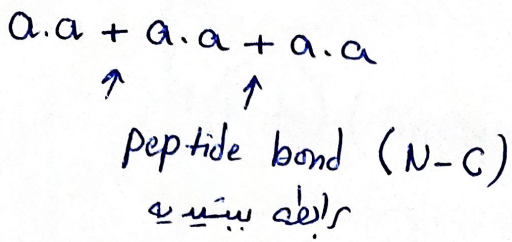 a.a + a.a + a.a
↑ ↑
peptide bond (N-C)
رابطه ببتيديه